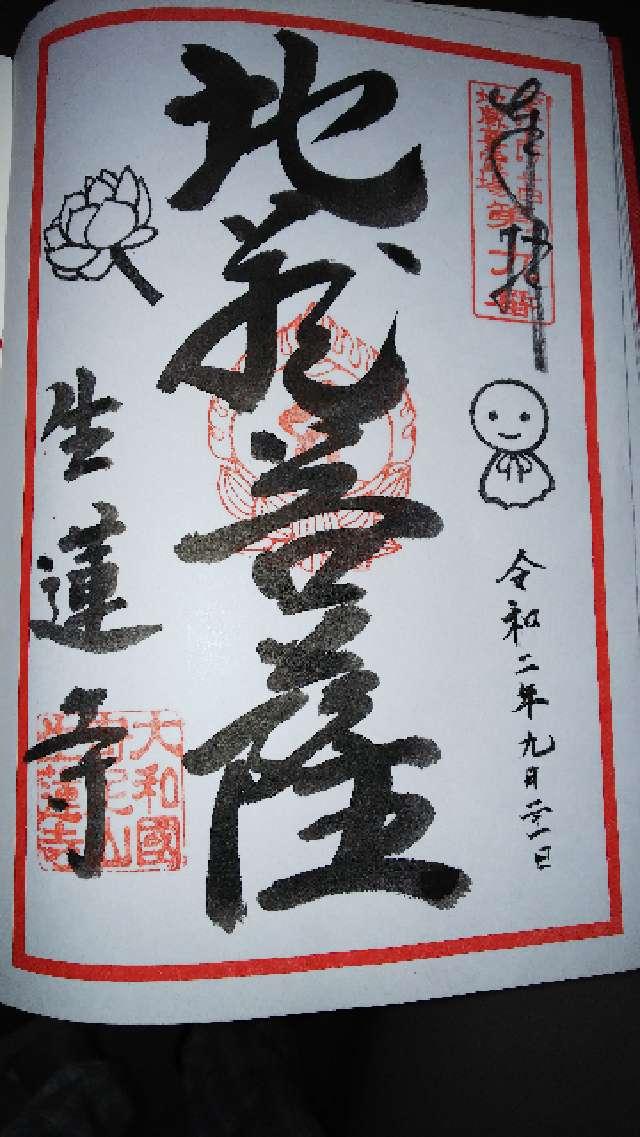 奉拝
第九番
令和二年九月二十一日
地蔵菩薩
生蓮寺
大和國
生蓮寺